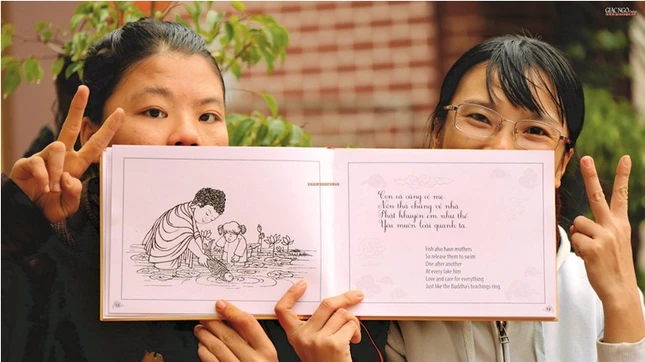 GIÁC NGỘ
Con cá cũng có mẹ
Nên thả chúng về nhà
Phật khuyên em như thế
Yêu muôn loài quanh ta
Fish also have mothers
So release them to swim
One after another
At every lake brim
Love and care for everything
Just like the Buddha's teachings ring.